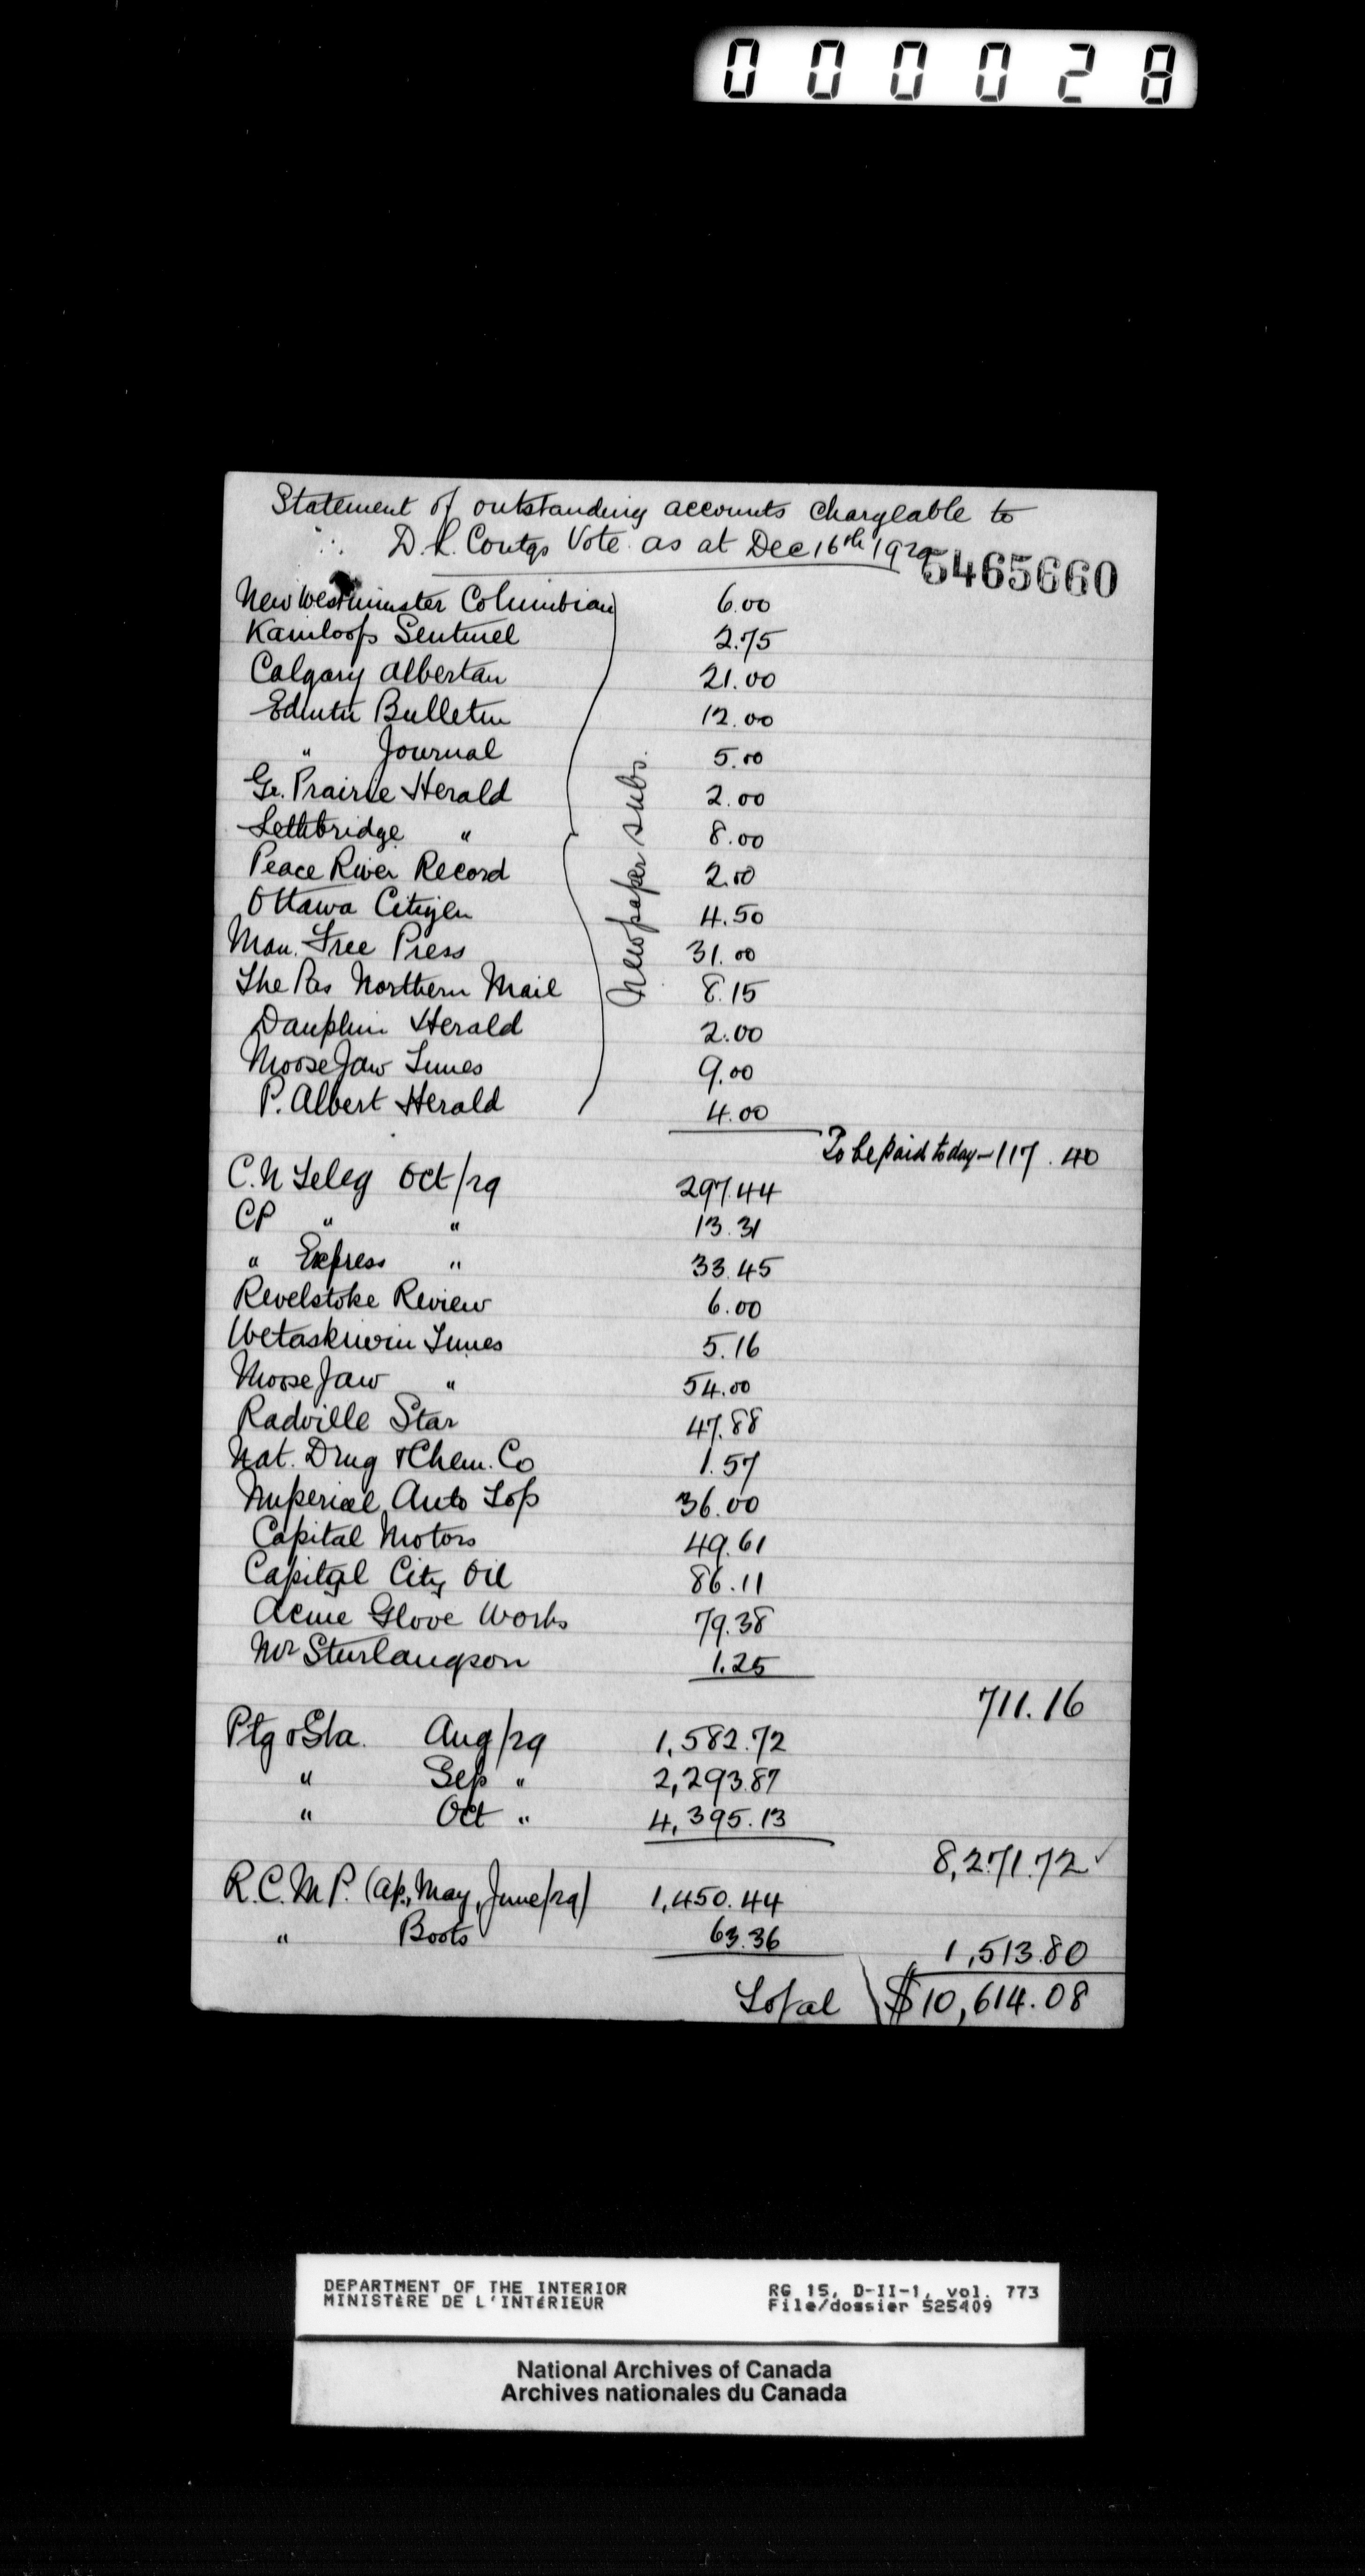 000028
Statement of outstanding accounts chargeable to
D. L. Contgs Vote as at Dec 16th 1929
5465660
New Westminster Columbian 6.00
Kamloops Sentinel 2.75
Calgary Albertan 21.00
Edmtn Bulletin 12.00
" Journal 5.00
Gr. Prairie Herald 2.00
Lethbridge " 8.00
Peace River Record 2.00
Ottawa Citizen 4.50
Man. Free Press 31.00
The Pas Northern Mail 8.15
Dauphin Herald 2.00
Moose Jaw Times 9.00
P. Albert Herald 4.00
Newspaper subs.
To be paid today – 117.40
C.N Teleg Oct/29 297.44
CP " " 13.31
" Express " 33.45
Revelstoke Review 6.00
Wetaskiwin Times 5.16
Moose Jaw " 54.00
Radville Star 47.88
Nat. Drug & Chem. Co 1.57
Imperial Auto Top 36.00
Capital Motors 49.61
Capital City Oil 86.11
Acme Glove Works 79.38
Mr Sturlaugson 1.25
711.16
Ptg & Sta. Aug/29 1,582.72
" Sep " 2,293.87
" Oct " 4,395.13
8,271.72 ✓
R.C.M.P. (Ap., May, June/29) 1,450.44
" Boots 63.36
1,513.80
Total $10,614.08
DEPARTMENT OF THE INTERIOR
MINISTÈRE DE L'INTÉRIEUR
RG 15, D-II-1, vol. 773
File/dossier 525409
National Archives of Canada
Archives nationales du Canada